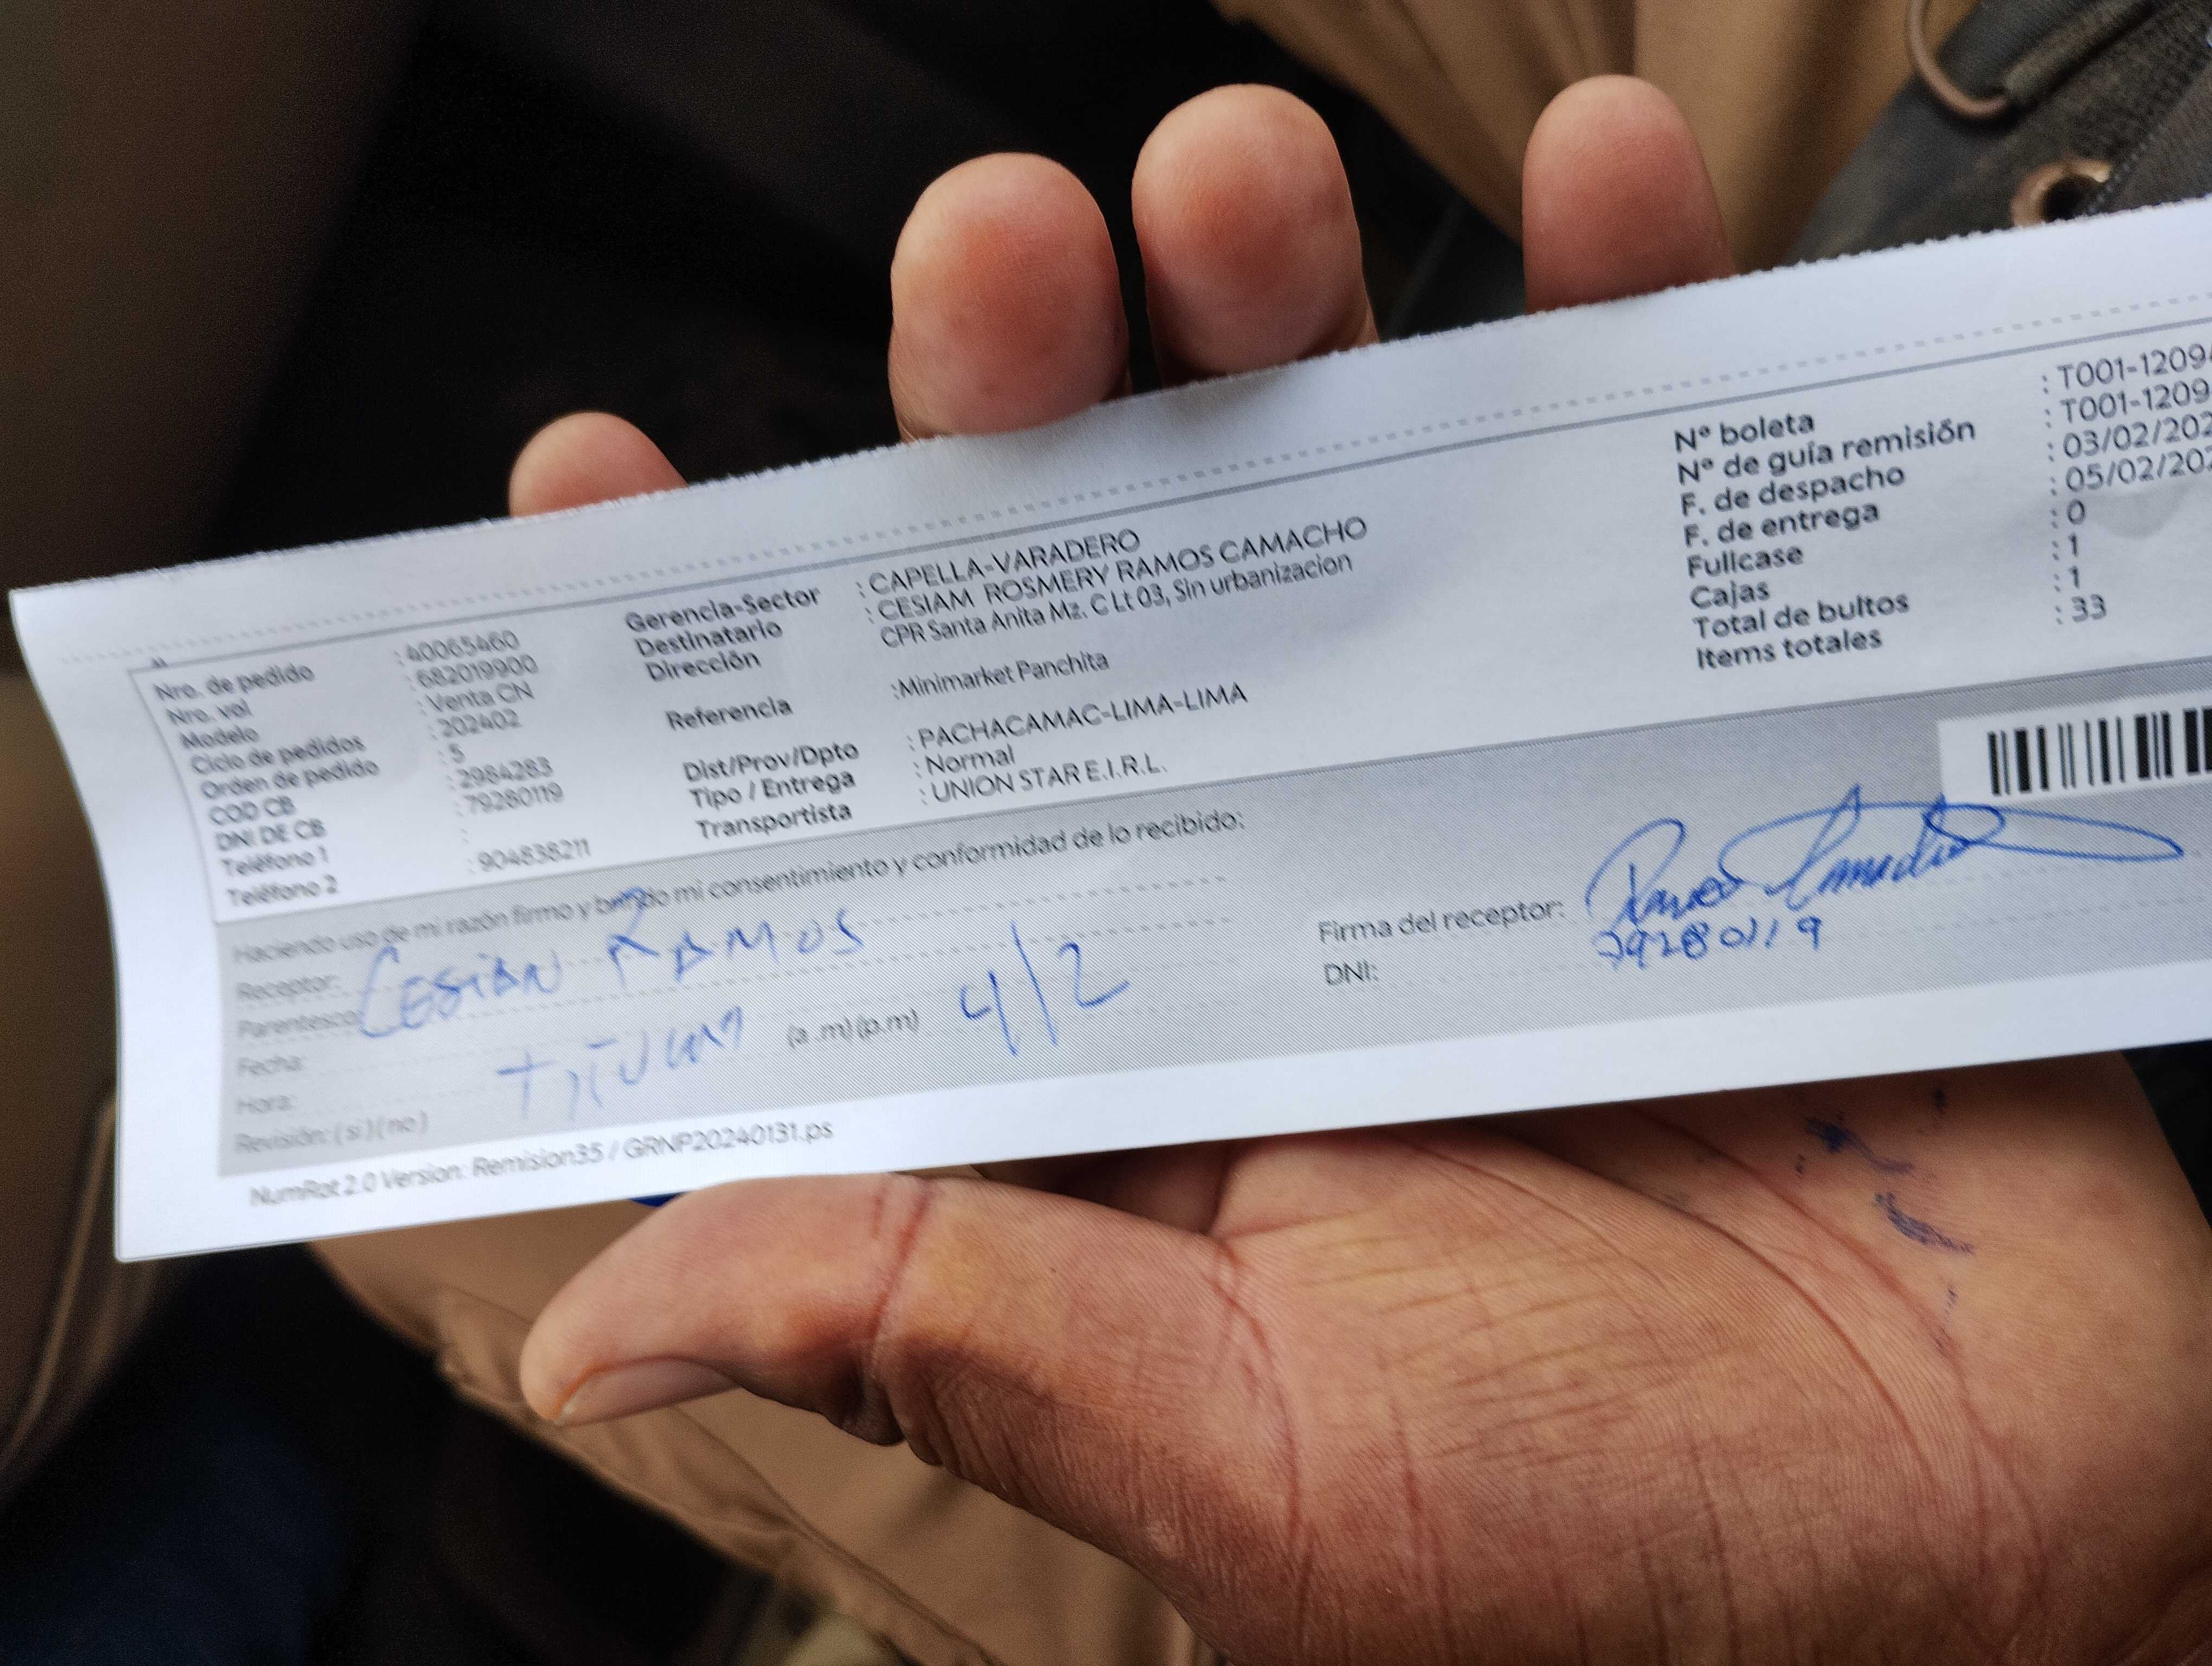 Nro. de pedido : 40065460
Nro. val : 682019900
Modelo : Venta CN
Ciclo de pedidos : 202402
Orden de pedido : 5
COD CB : 2984283
DNI DE CB : 79280119
Teléfono 1 :
Teléfono 2 : 904838211
Gerencia-Sector : CAPELLA-VARADERO
Destinatario : CESIAM ROSMERY RAMOS CAMACHO
Dirección CPR Santa Anita Mz. C Lt 03, Sin urbanizacion
Referencia :Minimarket Panchita
Dist/Prov/Dpto : PACHACAMAC-LIMA-LIMA
Tipo / Entrega : Normal
Transportista : UNION STAR E.I.R.L.
Nº boleta : T001-1209
Nº de guía remisión : T001-1209
F. de despacho : 03/02/202
F. de entrega : 05/02/202
Fullcase : 0
Cajas : 1
Total de bultos : 1
Items totales : 33
Haciendo uso de mi razón firmo y brindo mi consentimiento y conformidad de lo recibido:
Receptor: CESIAN RAMOS
Parentesco:
Fecha:
Hora: TITULAR (a .m) (p.m) 4/2
Revisión: ( si ) ( no )
Firma del receptor: Ramos Camacho
DNI: 79280119
NumRot 2.0 Version: Remision35 / GRNP20240131.ps